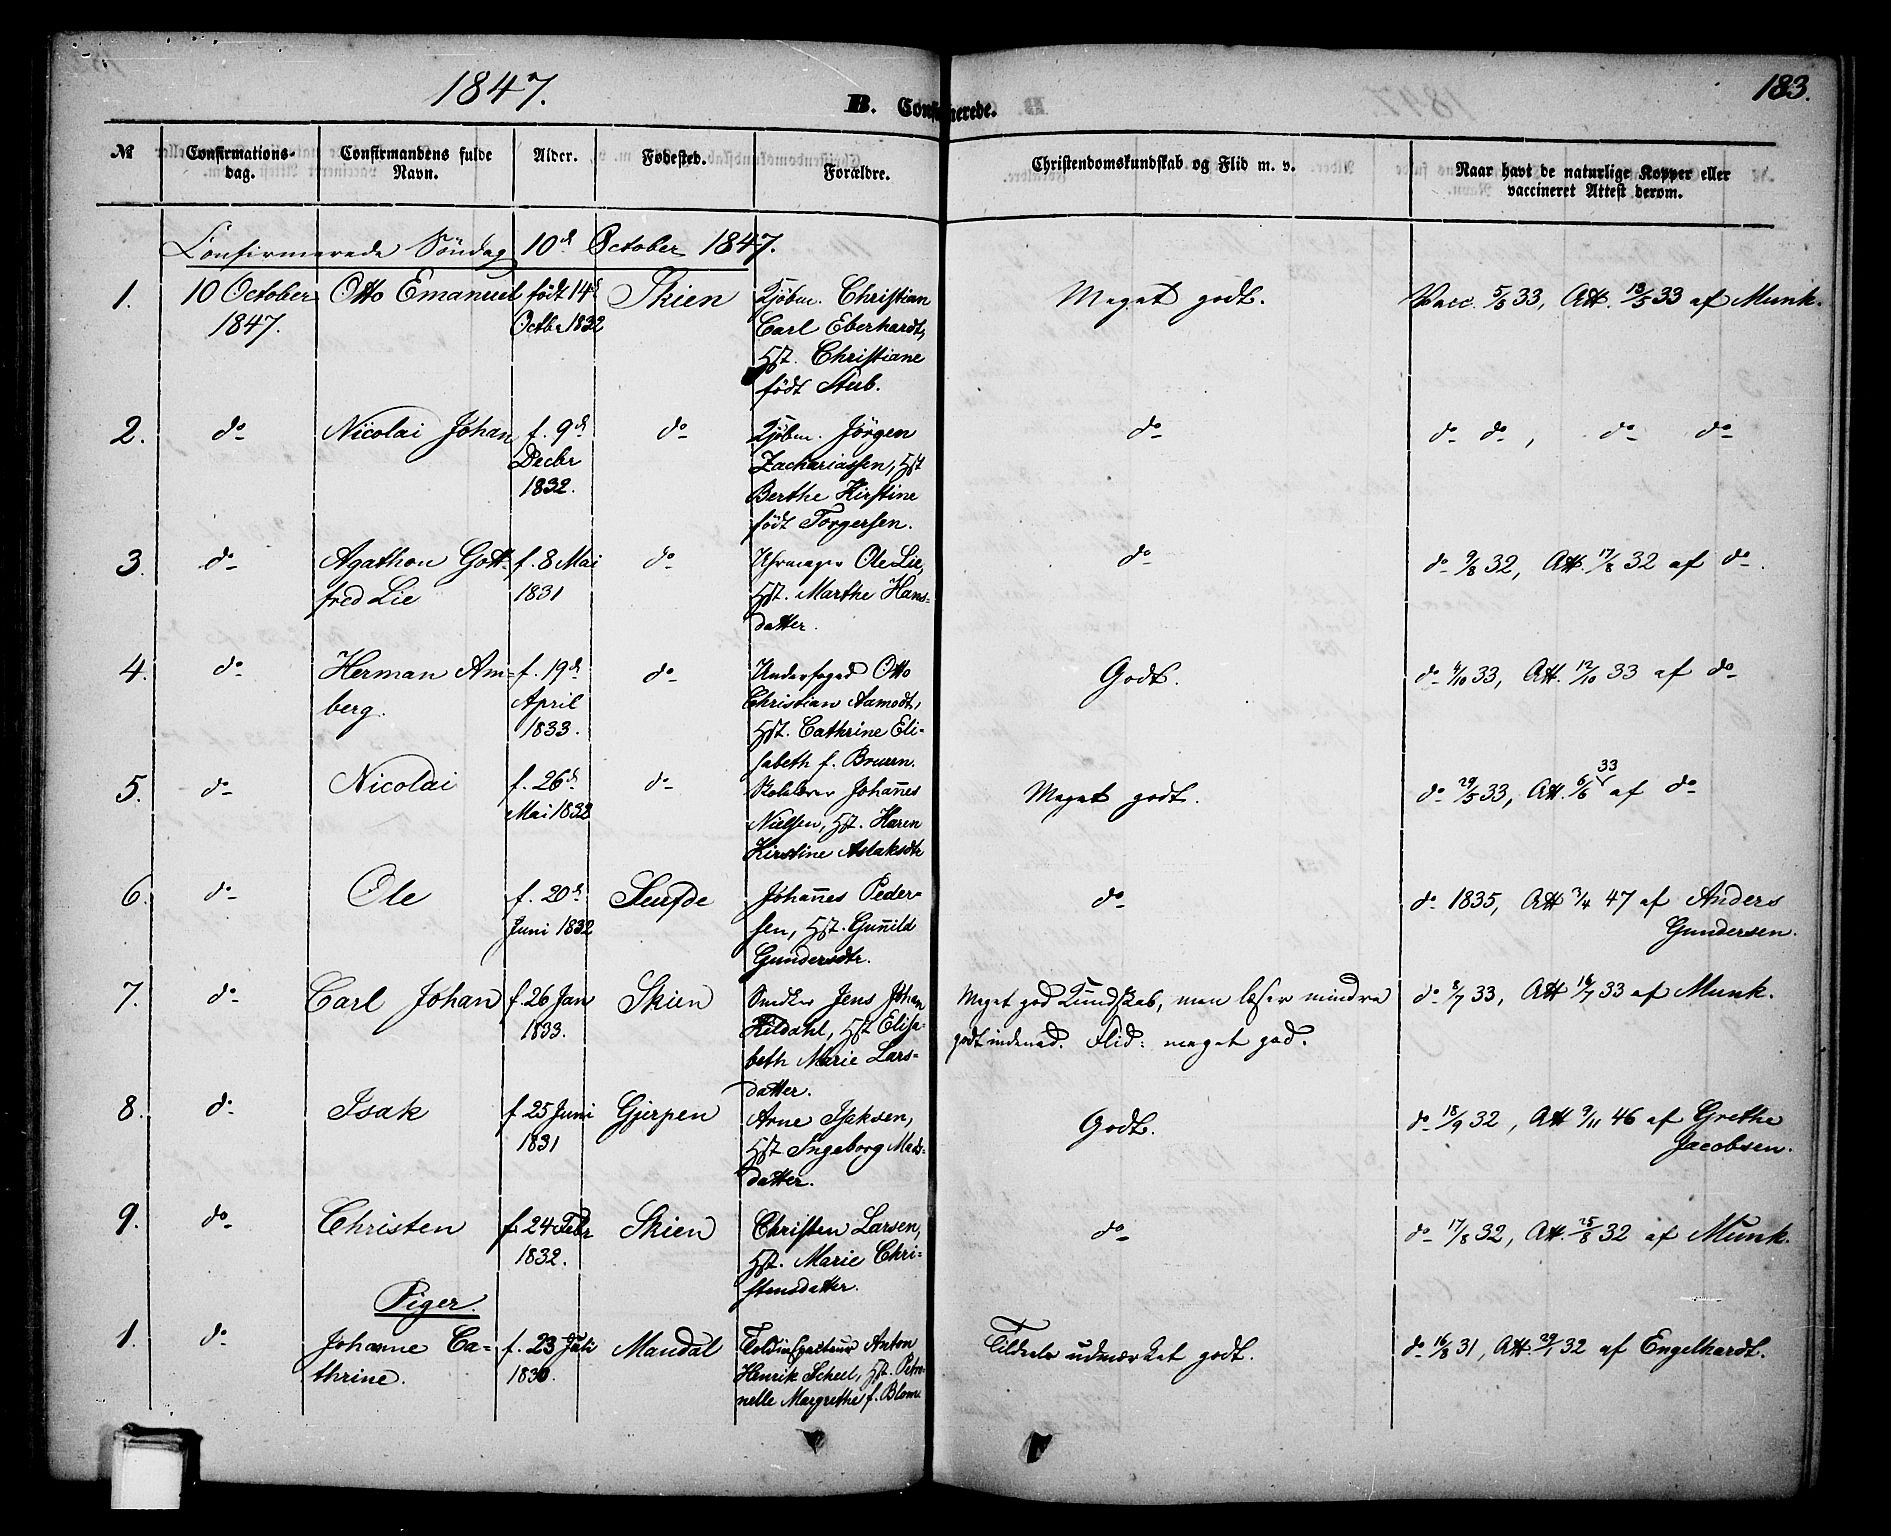 1847.
B. Confirmerede.
183.
No
Confirmations-dag.
Confirmandens fulde Navn.
Alder.
Fødested.
Forældre.
Christendomskundskab og Flid m. v.
Naar havt de naturlige Kopper eller vaccineret Attest derom.
Confirmerede Søndag 10d October 1847.
1. 10 October Otto Emanuel født 14d Skien Kjøbm. Christian Meget godt. Vacc. 5/5 33, Att. 13/5 33 af Munk.
1847. Octbr 1832 Carl Eberhardt,
Hst. Christiane
født Stub.
2. do Nicolai Johan f. 9d do Kjøbm. Jörgen do do do, do do
Decbr Zachariassen, Hst
1832. Berthe Kirstine
født Torgersen.
3. do Agathon Gott- f. 8 Mai do Uhrmager Ole Lie, do do 9/8 32, Att. 17/8 32 af do.
fred Lie 1831 Hst. Marthe Hans-
datter.
4. do Herman Am- f. 19d do Underfoged Otto Godt. do 4/10 33, Att. 12/10 33 af do
berg. April Christian Aamodt,
1833. Hst. Cathrine Eli-
sabeth f. Bruun.
5. do Nicolai f. 26d do Johannes Meget godt. do 29/5 33, Att. 6/6 33 af do
Mai 1832 Nielsen, Hst. Karen
Kirstine Aslaksdtr
6. do Ole f. 20d Seufde Johannes Peder- do do 1835, Att 3/4 47 af Anders
Juni 1832 sen, Hst. Gunild Gundersen.
Gundersdtr.
7. do Carl Johan f. 26 Jan Skien Snedker Jens Johan Meget god Kundskab, men læser mindre do 8/7 33, Att 16/7 33 af Munk.
1833. Kildahl, Hst Elisa- godt indenad. Flid: meget god.
beth Marie Lars-
datter.
8. do Isak f 25 Juni Gjerpen Arne Isaksen, Godt. do 18/9 32, Att 9/11 46 af Grethe
1831 Hst Ingeborg Mads- Jacobsen.
datter.
9. do Christen f. 24 Febr Skien Christen Larsen, do do 17/8 32, Att. 25/8 32 af Munk.
1832. Hst. Marie Chri-
stensdatter.
Piger.
1. do Johanne Ca- f. 23 Juli Mandal Toldinspecteur Anton Tildeels udmærket godt. do 16/8 31, Att. 29/1 32 af Engelhardt.
thrine. 1830. Henrik Scheel, Hst. Petro-
nelle Margrethe, f. Blom